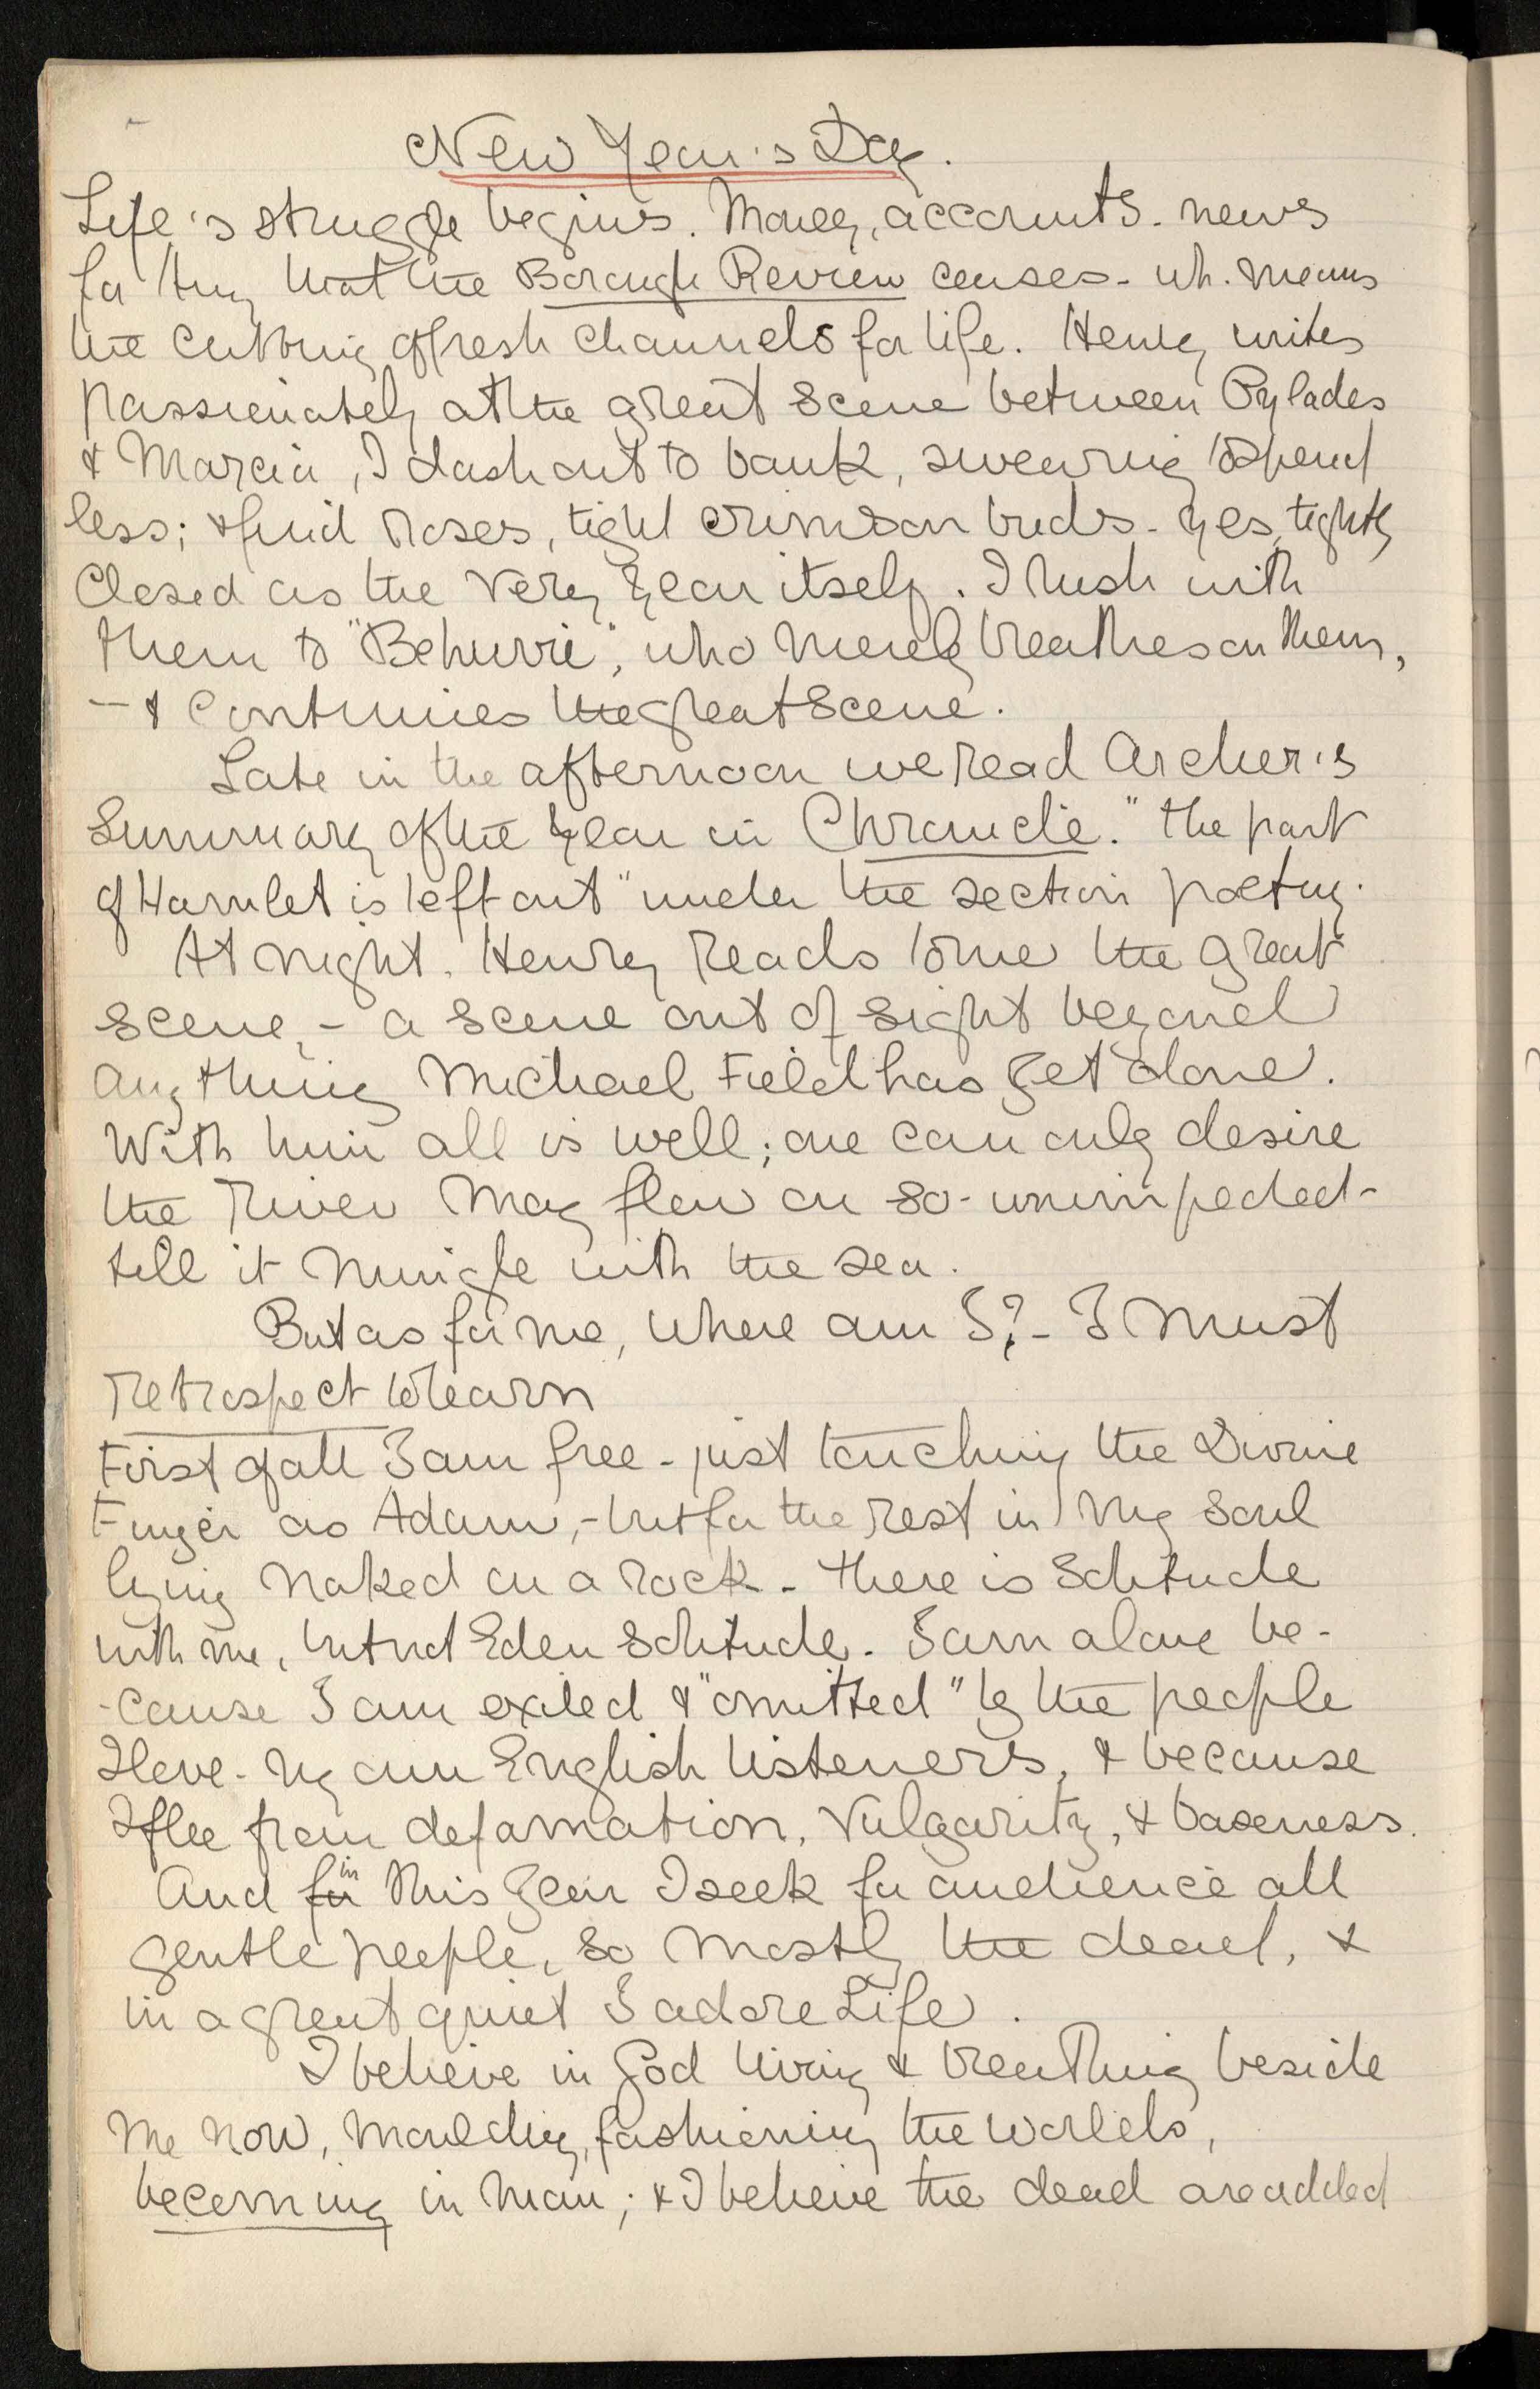 New Year's Day.
Life's struggle begins. Money, accounts - news
that the Borough Review ceases - wh. means
the cutting of fresh channels for life. Henry writes
passionately at the great scene between Pylades
& Marcia, I dash out to bank, swearing to spend
less; & find roses, tight crimson buds - yes, tightly
closed as the very year itself. I rush with
them to " ", who merely breathes on them,
— & continues the great scene.
Late in the afternoon we read Archer's
Summary of the Year in Chronicle. "The part
of Hamlet is left out" under the section poetry.
At night, Henry reads to me the great
scene, - a scene out of sight beyond
anything Michael Field has yet done.
With him all is well; one can only desire
the river may flow on so - unimpeded -
till it mingle with the sea.
But as for me, where am I? - I must
retrospect to learn
First of all I am free - just touching the Divine
Finger as Adam, - but for the rest in my soul
lying naked on a rock - there is solitude
with me, but not Eden solitude. I am alone be-
-cause I am exiled & "omitted" by the people
I love - my own English listeners, & because
I flee from defamation, vulgarity, & baseness.
And for in this year I seek for audience all
gentle people, so mostly the dead, &
in a great quiet I adore Life.
I believe in God living & breathing beside
me now, moulding, fashioning the worlds,
becoming in man; & I believe the dead are added